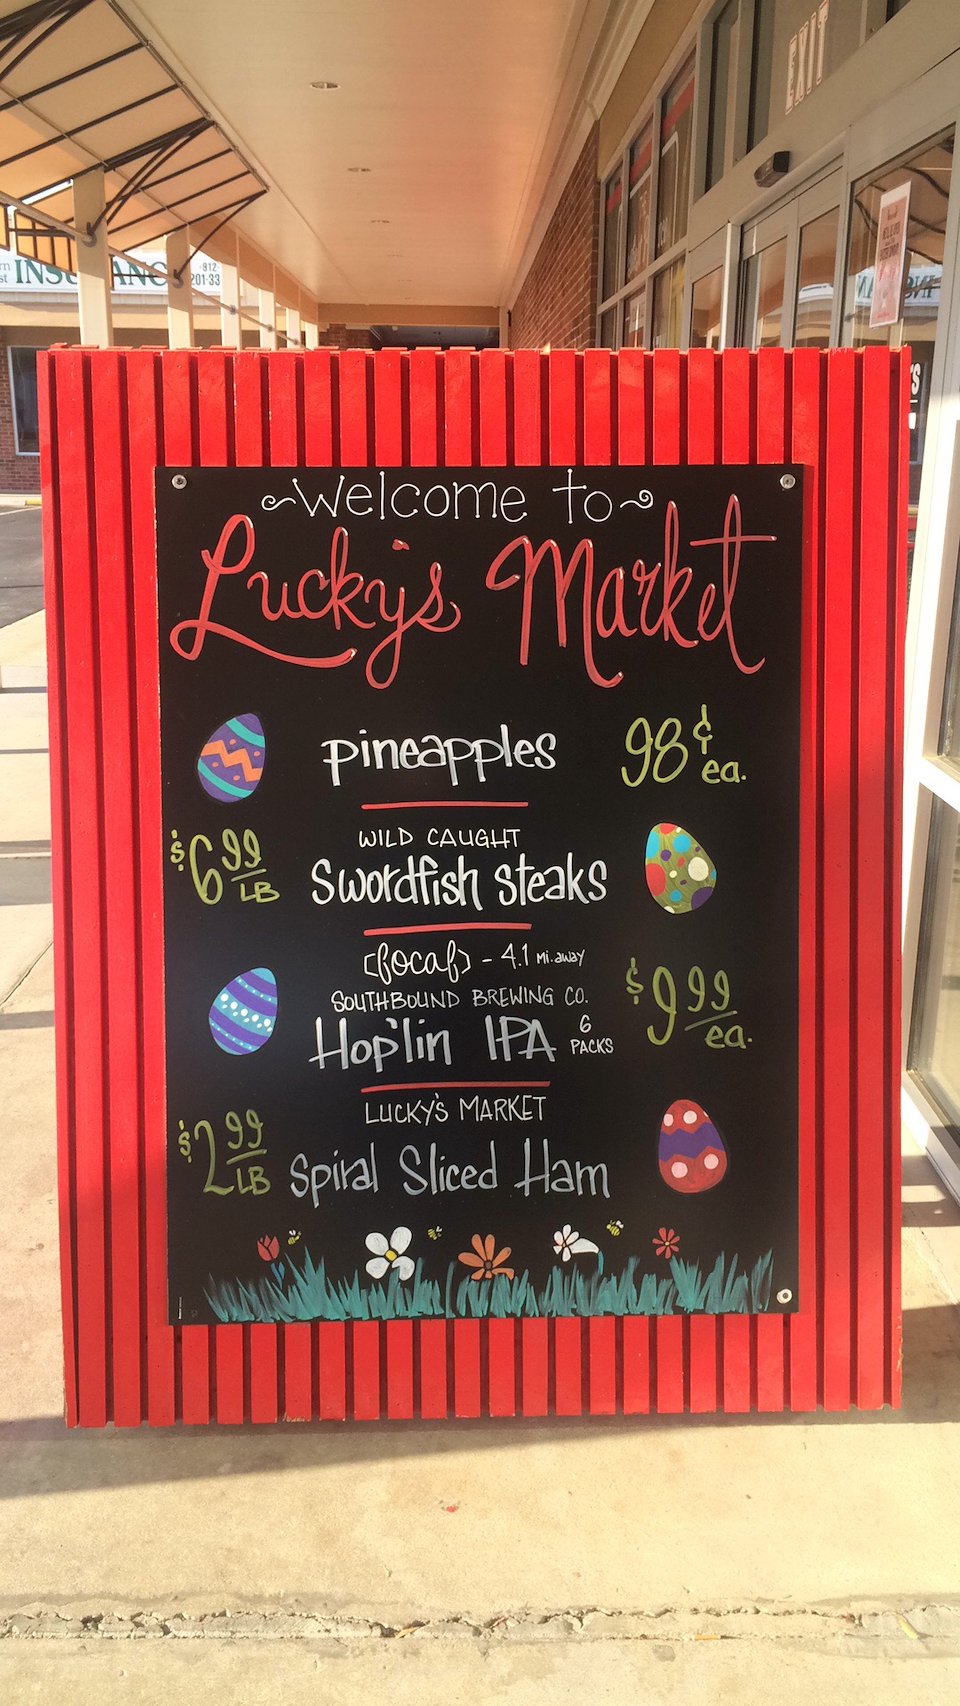 EXIT
INSURANCE
912-
201-33
~welcome to~
Lucky's Market
pineapples 98¢ ea.
WILD CAUGHT
$6.99 LB swordfish steaks
(local) - 4.1 mi. away
SOUTHBOUND BREWING CO.
Hop'lin IPA 6 PACKS $9.99 ea.
LUCKY'S MARKET
$2.99 LB Spiral Sliced Ham